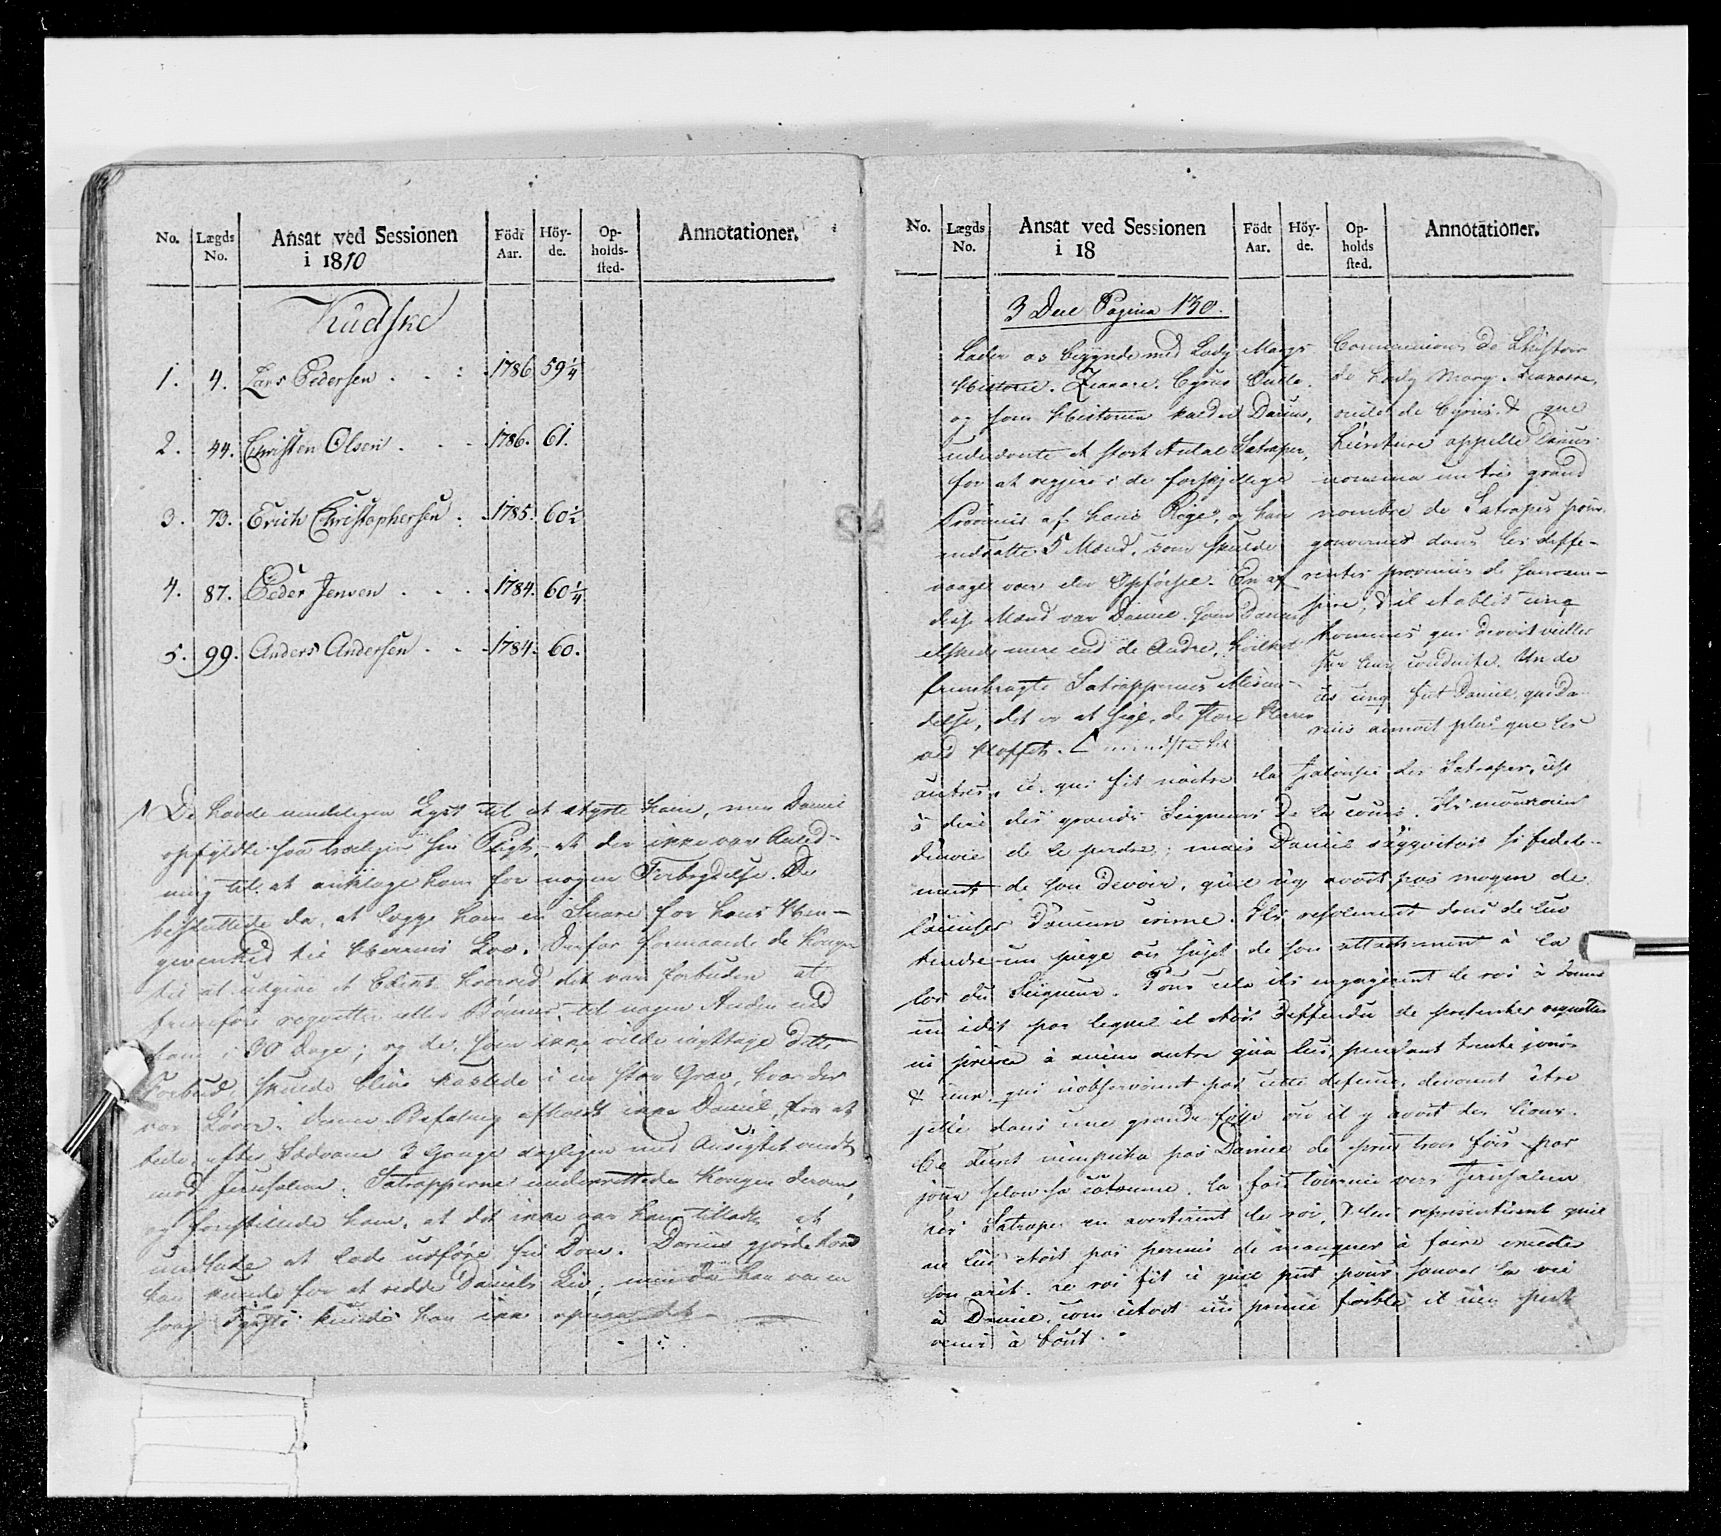 No. Lægds No. Ansat ved Sessionen i 1810 Födt Aar. Höy-de. Op-holds-sted. Annotationer.
Kudske
1. 4. Lars Pedersen . . : 1786 59 1/4
2. 44. Christen Olsen . . . 1786. 61.
3. 73. Erich Christophersen . 1785. 60 1/2
4. 87. Peder Jensen . . . 1784. 60 1/4
5. 99. Anders Andersen . . 1784. 60.
De havde uendeligen Lyst til at styrte ham, men Daniel
opfyldte saa troeligen sin Pligt, at der ikke var Anled-
ning til at anklage ham for nogen Forbrydelse. De
besluttede da, at lægge ham en Snare for hans Hen-
givenhed til Herrens Lov. Derfor formaaede de Kongen
til at udgive et Edict hvorved det var forbuden at
fremføre reqvetter eller Bønner til nogen Anden end
ham i 30 Dage; og de som ikke vilde iagttage dette
Forbud, skulde blive kastede i en stor Grav, hvor der
var Løver. Denne Befaling afholdt ikke Daniel, fra at
bede efter Sædvane 3 Gange dagligen med Ansigtet vendt
mod Jerusalem. Satrapperne underrettede Kongen derom,
og forestillede ham, at det ikke var ham tilladt at
undlade at lade udføre sin Dom. Darius gjorde hvad
han kunde for at redde Daniels Liv, men da han var en
svag Fyrste kunde han ikke
No. Lægds No. Ansat ved Sessionen i 18 Födt Aar. Höy-de. Op-holds sted. Annotationer.
3 Deel Pagina 130.
Lader os begynde med Lady Marys
Historie. Zianare. Cyrus Onkle.
og som Historien kalder Darius,
udnævnte et stort Antal Satraper,
for at regjere i de forskjellige
Provinser af hans Rige, og han
indsatte 5 Mænd, som skulde
vaage over der Opførsel. En af
disse Mænd var Daniel. som Darius
elskede mere end de Andre, hvilket
frembragte Satrappernes Misun-
delse, det er at sige, de store Herrer
ved Hoffet.
Commencions de L'histoire
de Lady Mary. Zianare,
oncle de Cyrus. & que
L'ecriture appelle Darius
nomma un très grand
nombre de Satrapes pour
gouverner dans les diffe-
rentes provinces de son em-
pire, & il etablit cinq
hommes qui devoit veiller
sur leur conduite. Un de
ces cinq fut Daniel, que Da-
rius aimoit plus que les
autres, ce qui fit naitre la jalousie des Satrapes, c'est
à dire des grands Seigneurs de la cour. Ils mouroient
d'envie de le perdre; mais Daniel s'aqvitoit si fidele-
ment de son devoir, qu'il n'y avoit pas moyen de
l'accuser d'aucun crime. Ils resolurent donc de lui
tendre un piege au sujet de son attachement à la
loi du Seigneur. Pour cela ils engagerent le roi à donner
un edit par lequel il etoit deffendu de presenter reqvettes
ni priere à aucun autre qu'a lui, pendant trente jours
& ceux qui n'observoient pas cette defence, devoient être
jetté dans une grande fosse ou il y avoit des lions.
Ce n'empecha pas Daniel de prier trois fois par
jour selon sa coutume, la face tournée vers Jerusalem
les Satrapes en avertirent le roi, & lui representirent qu'il
ne lui etoit pas permis de manquer à faire executer
son arêt. Le roi fit ce qu'il put pour sauver la vie
à Daniel, com c'etoit un prince foible il n'en put
venir à bout.